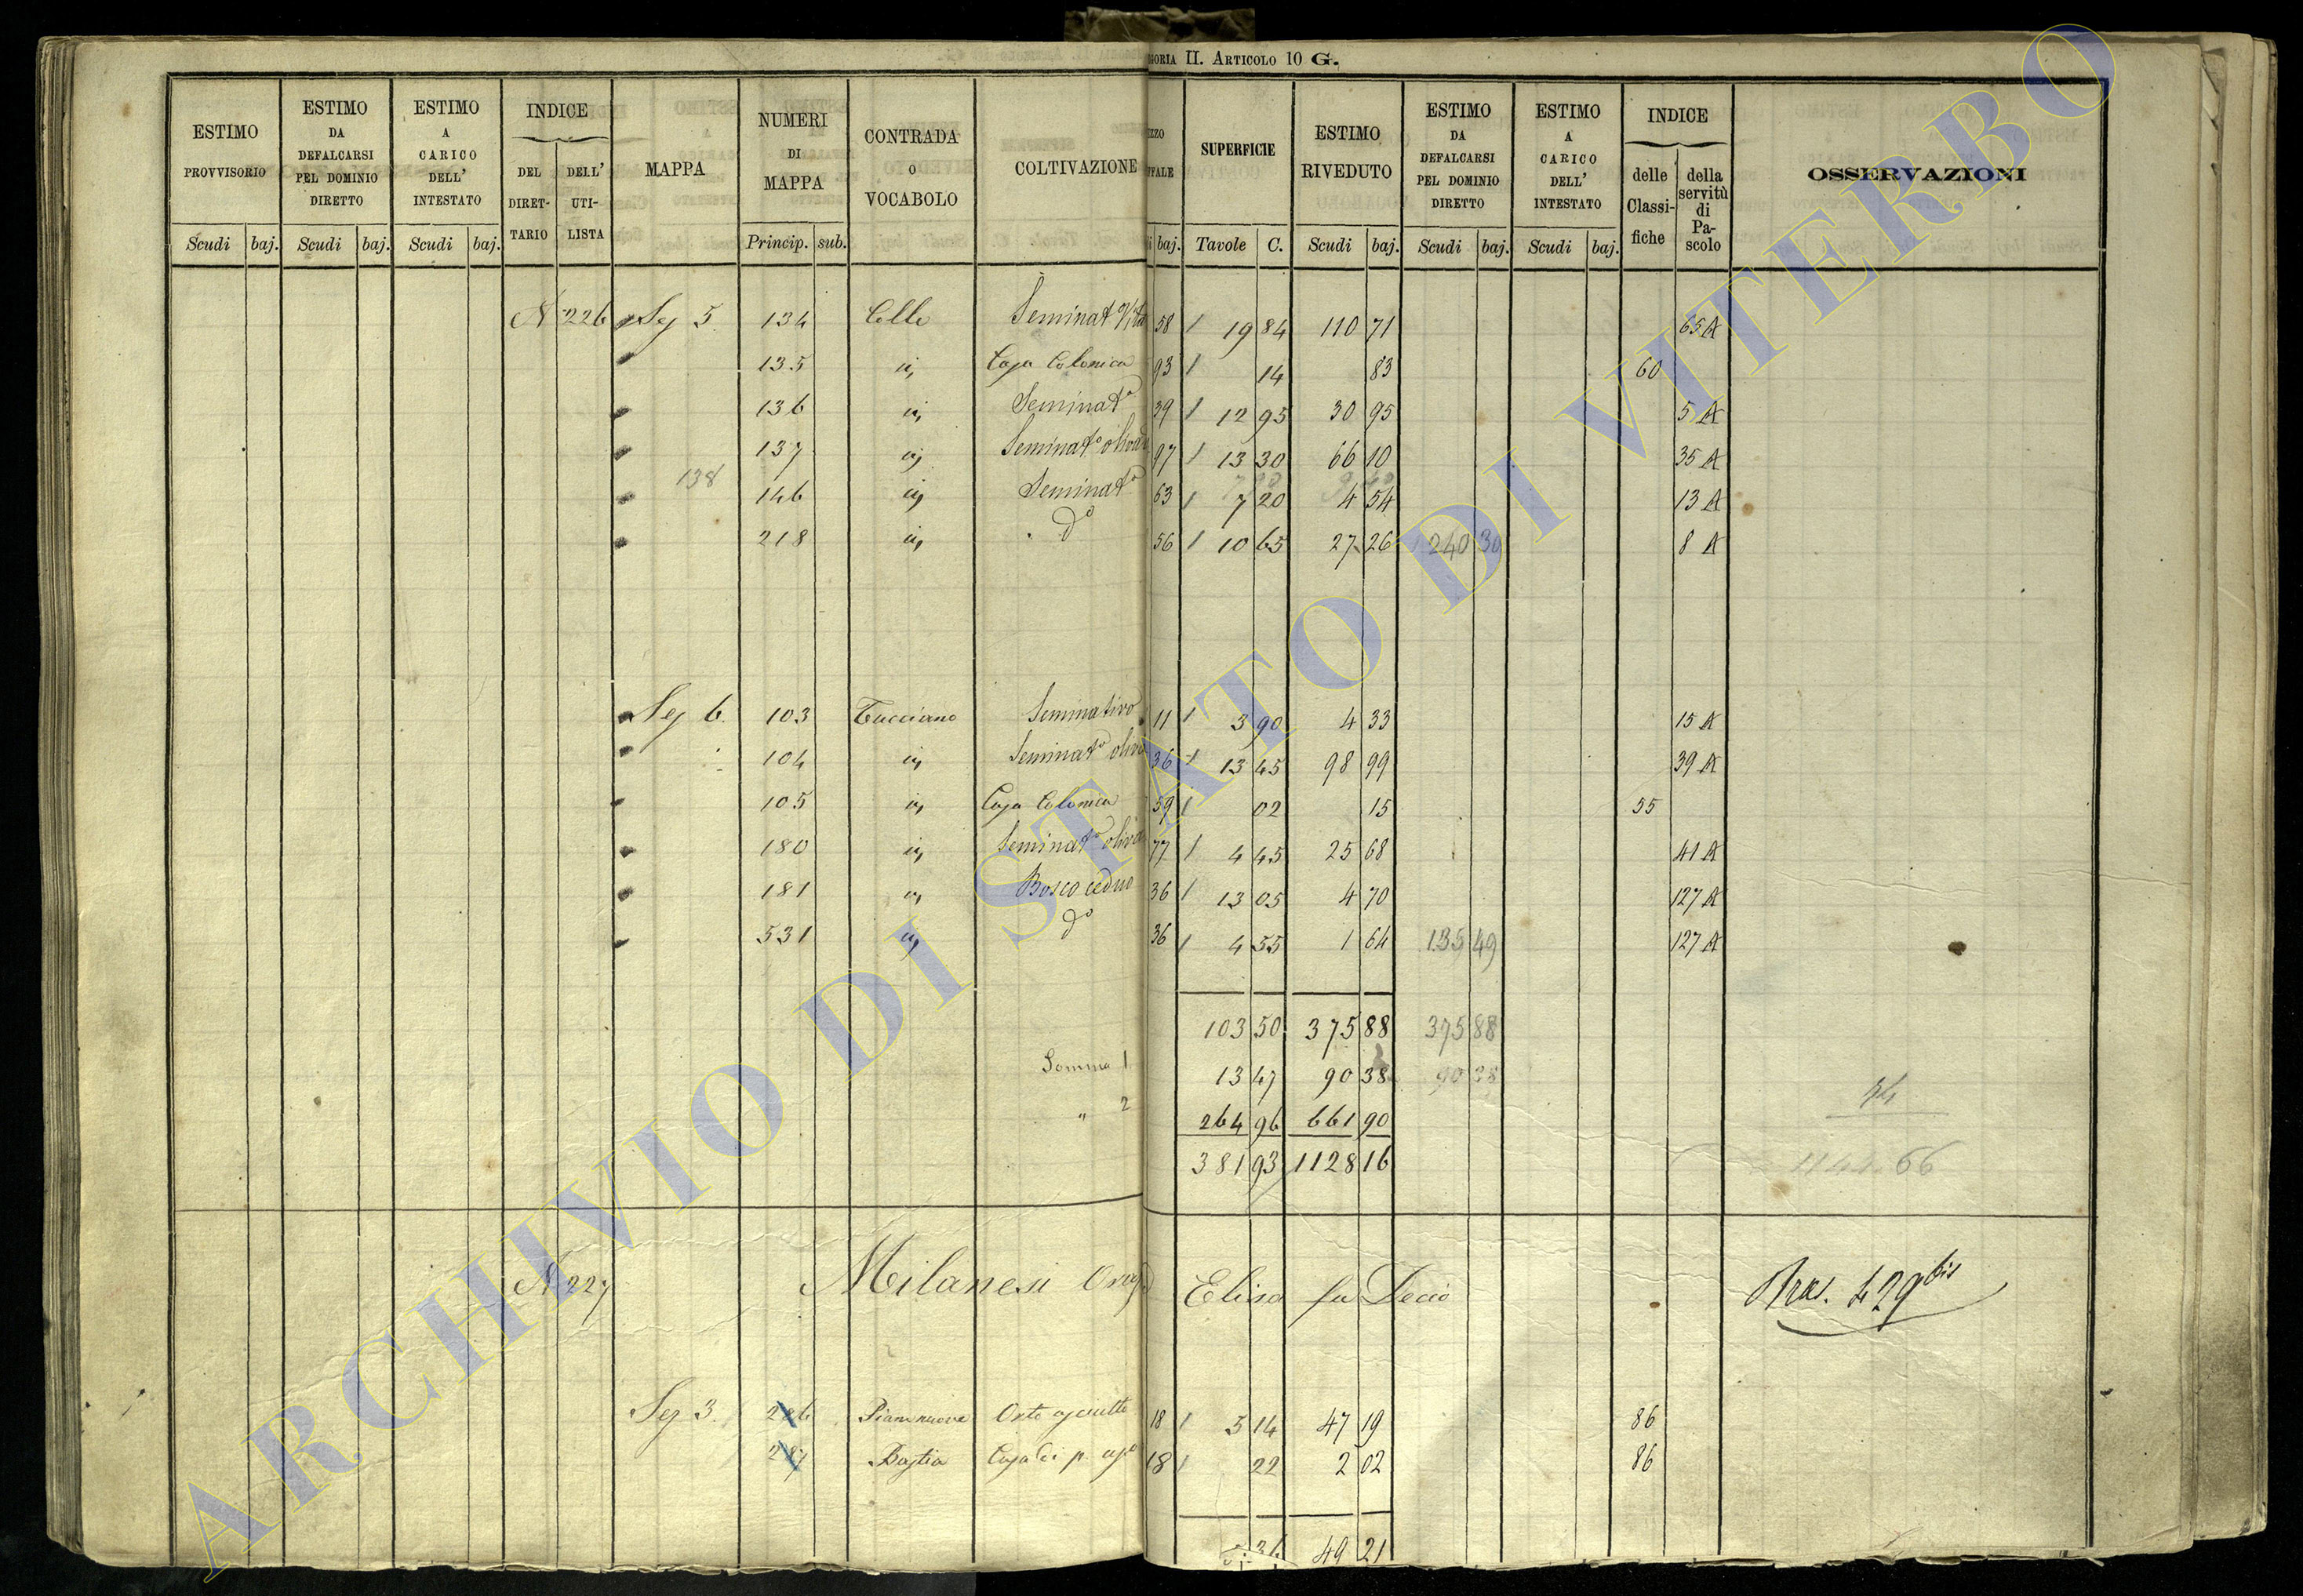 II. Articolo 10 G.
ESTIMO PROVVISORIO
Scudi baj.
ESTIMO DA DEFALCARSI PEL DOMINIO DIRETTO
Scudi baj.
ESTIMO A CARICO DELL' INTESTATO
Scudi baj.
INDICE
DEL DIRET-TARIO
DELL' UTI-LISTA
MAPPA
NUMERI DI MAPPA
Princip. sub.
CONTRADA O VOCABOLO
COLTIVAZIONE
baj.
SUPERFICIE
Tavole C.
ESTIMO RIVEDUTO
Scudi baj.
ESTIMO DA DEFALCARSI PEL DOMINIO DIRETTO
Scudi baj.
ESTIMO A CARICO DELL' INTESTATO
Scudi baj.
INDICE
delle Classi-fiche
della servitù di Pa-scolo
OSSERVAZIONI
N 226 Sez 5 134 Colle Seminat Vita 58 19 84 110 71 65 A
135 Casa Colonica 93 14 83 60
136 Seminato 39 12 95 30 95 5 A
137 Seminato oliva 97 13 30 66 10 35 A
138
146 Seminato 63 7 20 4 54 13 A
218 do 56 10 65 27 26 240 39 8 A
Sez 6. 103 Tucciano Seminativo 11 3 90 4 33 15 A
104 Seminato oliv 36 13 45 98 99 39 A
105 Casa Colonica 59 02 15 55
180 Seminato oliva 77 4 45 25 68 41 A
181 Bosco ceduo 36 13 05 4 70 127 A
531 do 36 4 55 1 64 135 49 127 A
103 50 375 88 375 88
Somma 1 13 47 90 38 90 38
" 2 264 96 661 90
381 93 1128 16
66
N 227 Milanesi Elisa fu Decio 429 bis
Sez 3. 286 Piannuova Orto asciutto 18 5 14 47 19 86
287 Bastia Casa di p. asso 18 22 2 02 86
36 49 21
ARCHIVIO DI STATO DI VITERBO